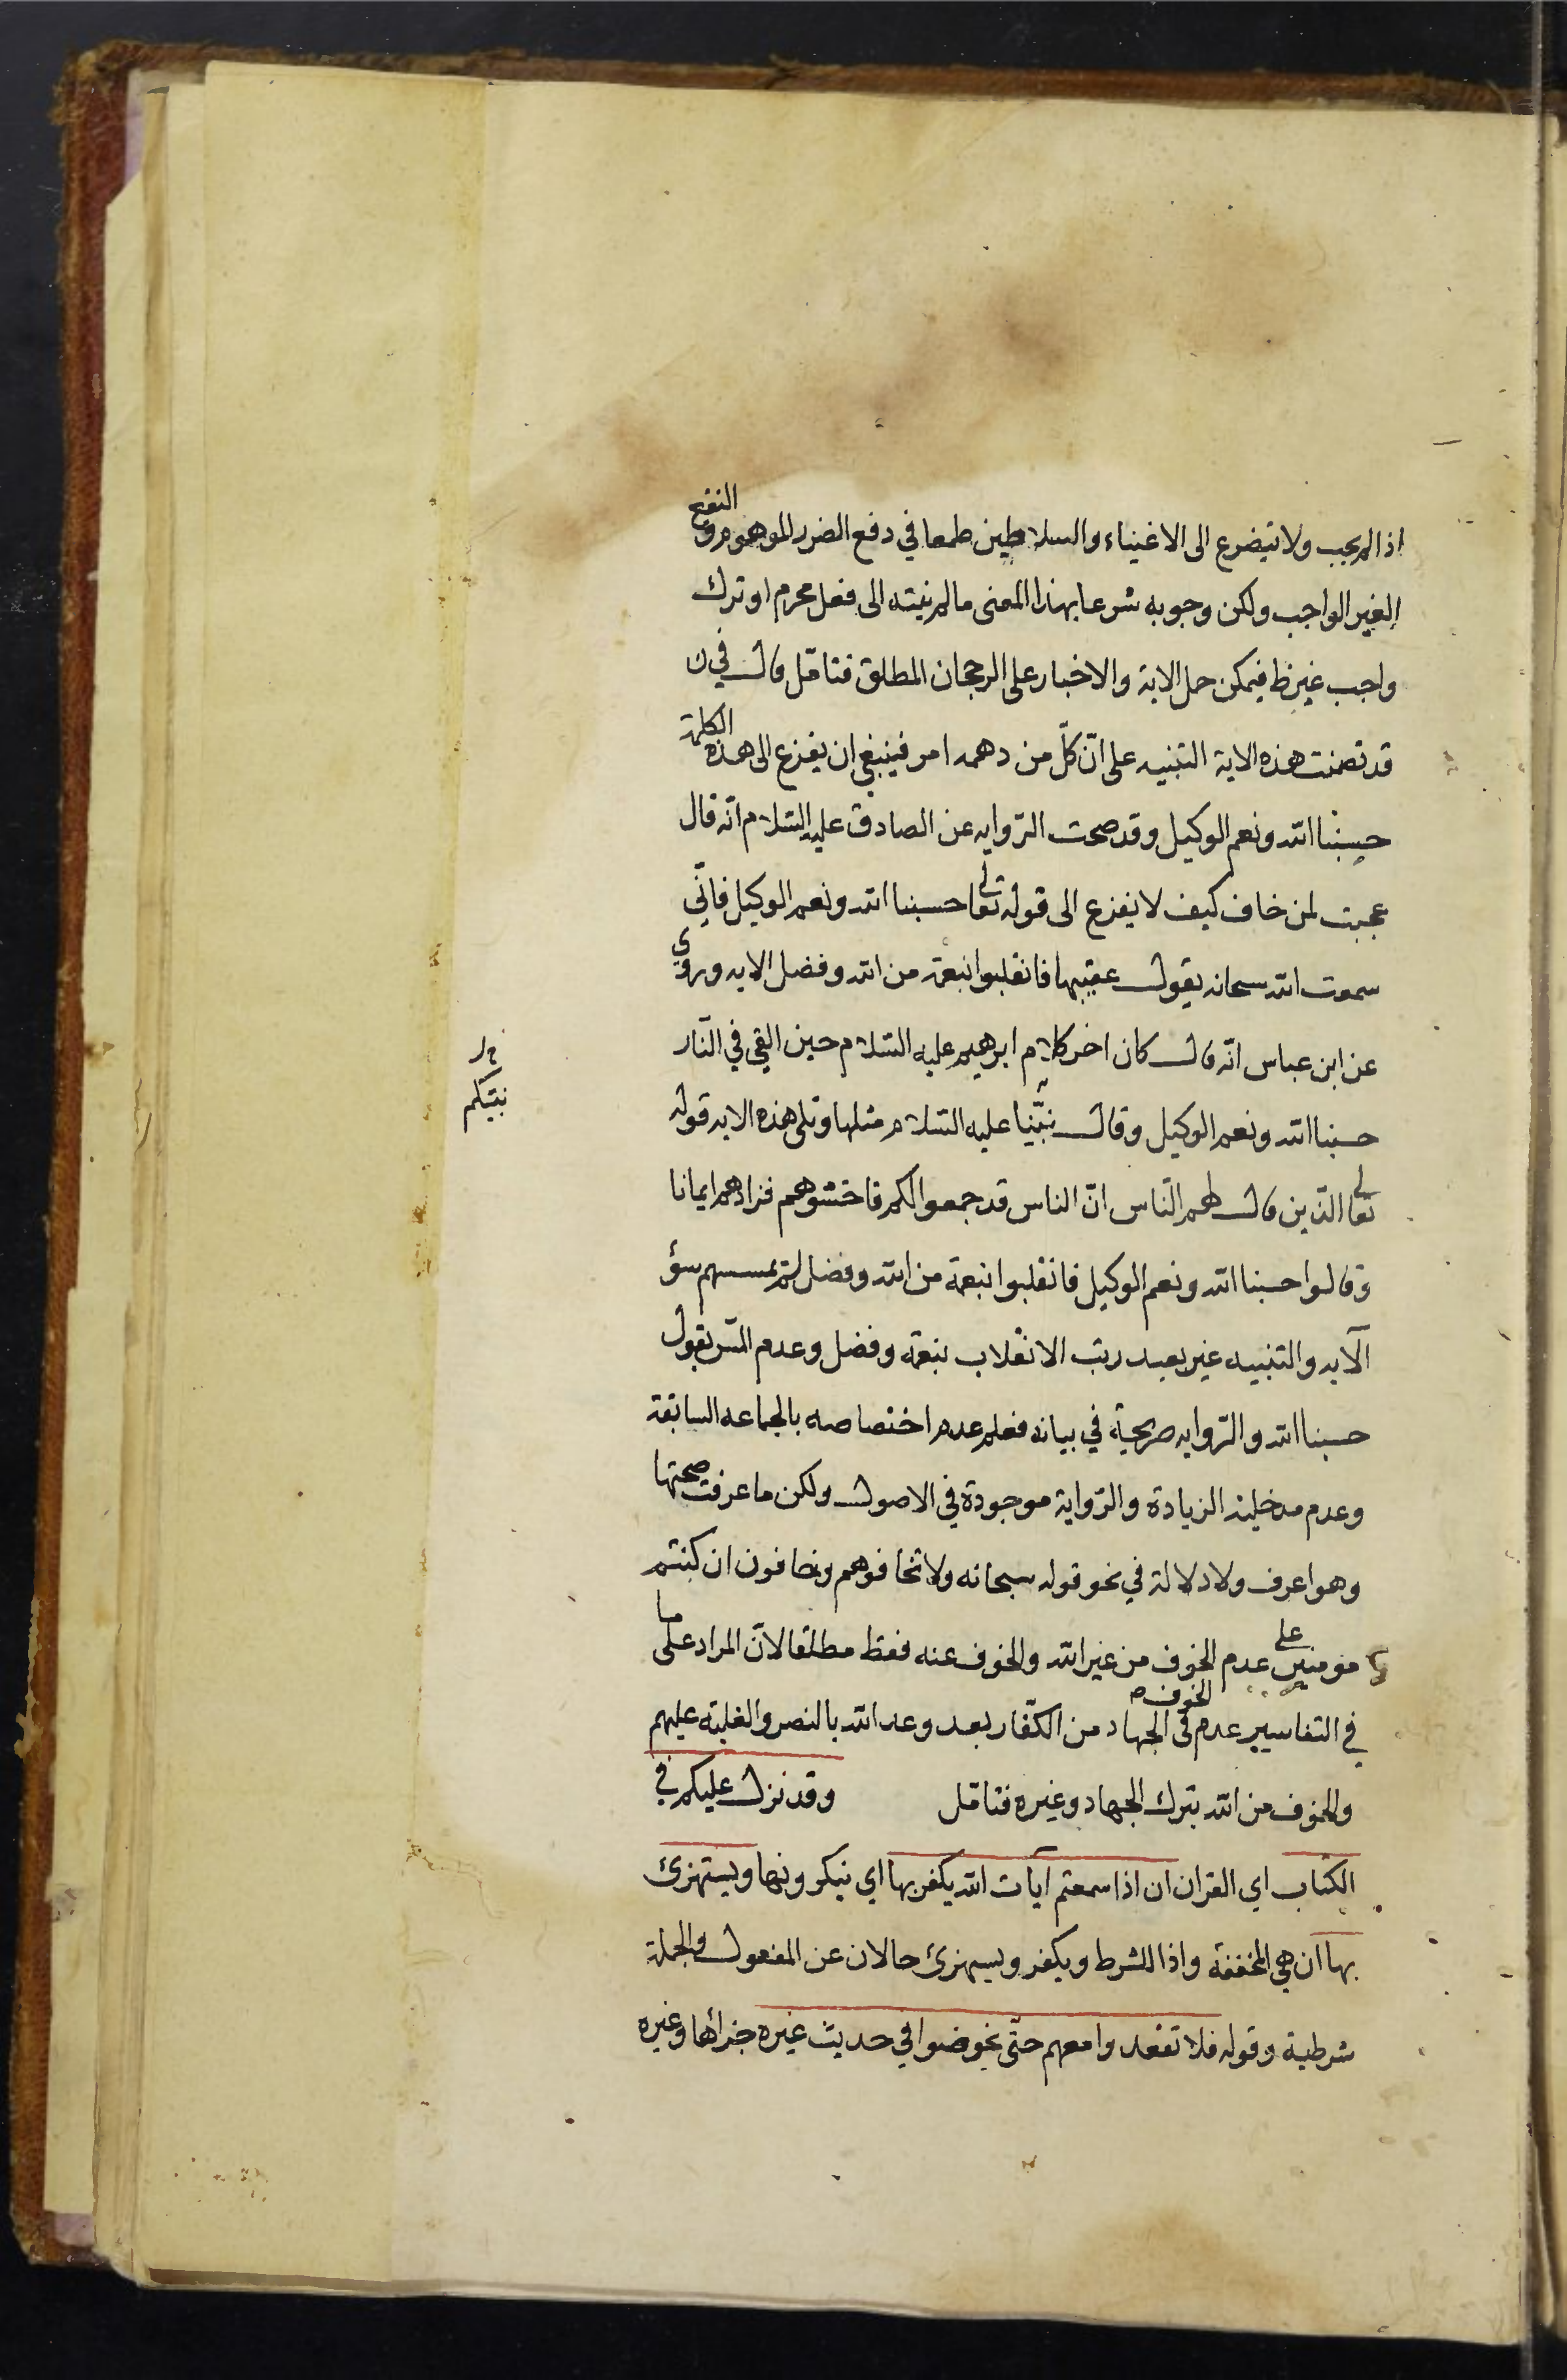 اذا لم يجب ولا يتضرع الى الاغنياء والسلاطين طمعا في دفع الضرر الموهوم و النفع
الغير الواجب ولكن وجوبه شرعا بهذا المعنى مالم ينته الى فعل محرم او ترك
واجب غير ظ فيمكن حمل الاية والاخبار على الرجحان المطلق فتامّل قال في ن
قد تضمنت هذه الاية التنبيه على انّ كلّ من دهمه امر فينبغي ان يفزع الى هذه الكلمة
حسبنا الله ونعم الوكيل وقد صحت الرّوايه عن الصادق عليه السّلام انّه قال
عجبت لمن خاف كيف لا يفزع الى قوله تعالى حسبنا الله ونعم الوكيل فانّي
سمعت الله سبحانه يقول عقيبها فانقلبوا بنعمة من الله وفضل الايه وروي
عن ابن عباس انّه قال كان اخر كلام ابرهيم عليه السّلام حين القي في النّار
حسبنا الله ونعم الوكيل وقال نبيّنا عليه السّلام مثلها وتلى هذه الايه قوله
نبيكم
تعالى الّذين قال لهم النّاس انّ الناس قد جمعوا لكم فاخشوهم فزادهم ايمانا
وقالوا حسبنا الله ونعم الوكيل فانقلبوا بنعمة من الله وفضل لم يمسسهم سؤ
الآيه والتنبيه غير بعيد رتب الانقلاب بنعمة وفضل وعدم المسّ بقول
حسبنا الله والرّوايه صريحة في بيانه فعلم عدم اختصاصه بالجماعه السابقة
وعدم مدخلية الزيادة والرّواية موجودة في الاصول ولكن ما عرفت صحتها
وهو اعرف ولا دلالة في نحو قوله سبحانه ولا تخافوهم وخافون ان كنتم
مومنين على عدم الخوف من غير الله والخوف عنه فقط مطلقا لانّ المراد على ما
في التفاسير عدم الخوف في الجهاد من الكفّار بعد وعد الله بالنصر والغلبة عليهم
والخوف من الله بترك الجهاد وغيره فتامّل وقد نزل عليكم في
الكتاب اي القران ان اذا سمعتم آيات الله يكفر بها اي ينكرونها ويستهزئ
بها ان هي المخففة واذا للشرط ويكفر ويستهزئ حالان عن المفعول والجملة
شرطية وقوله فلا تقعدوا معهم حتّى يخوضوا في حديث غيره جزائها وغيره